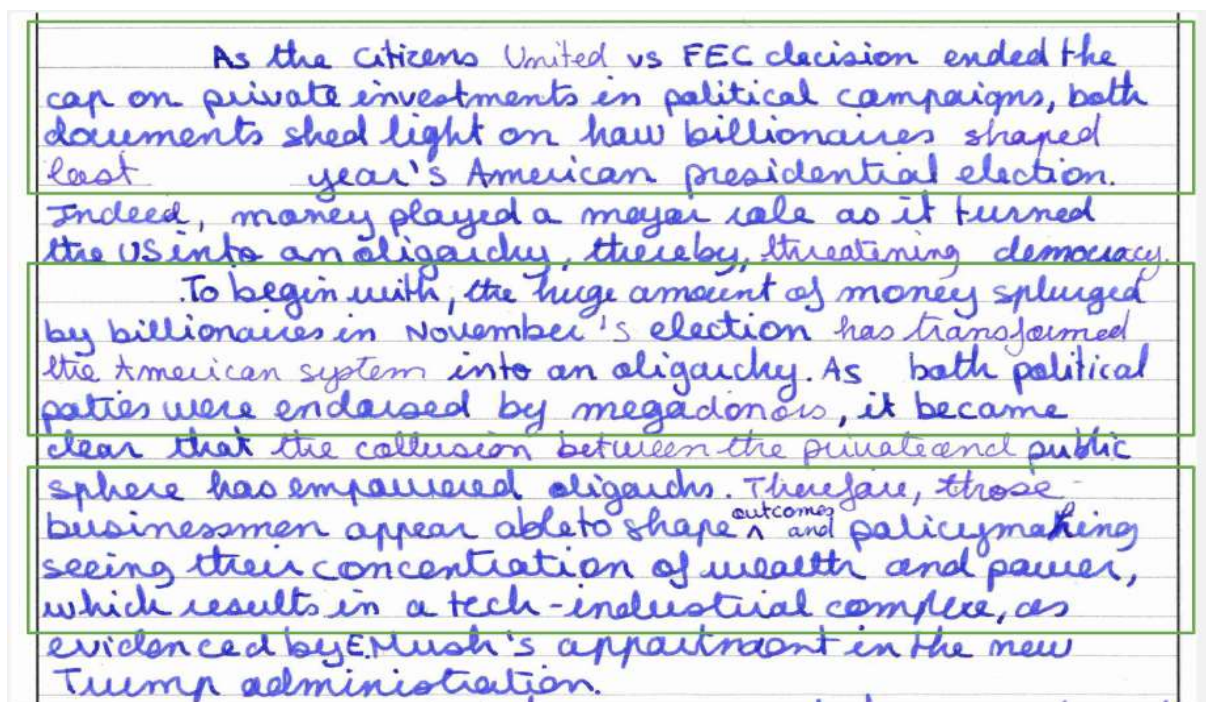 As the Citizens United vs FEC decision ended the
cap on private investments in political campaigns, both
documents shed light on how billionaires shaped
last year's American presidential election.
Indeed, money played a major role as it turned
the US into an oligarchy, thereby, threatening democracy.
To begin with, the huge amount of money splurged
by billionaires in November's election has transformed
the American system into an oligarchy. As both political
paties were endorsed by megadonors, it became
clear that the collusion between the private and public
sphere has empowered oligarchs. Therefore, those
businessmen appear able to shape outcomes and policymaking
seeing their concentration of wealth and power,
which results in a tech-industrial complex, as
evidenced by E.Musk's appointment in the new
Trump administration.